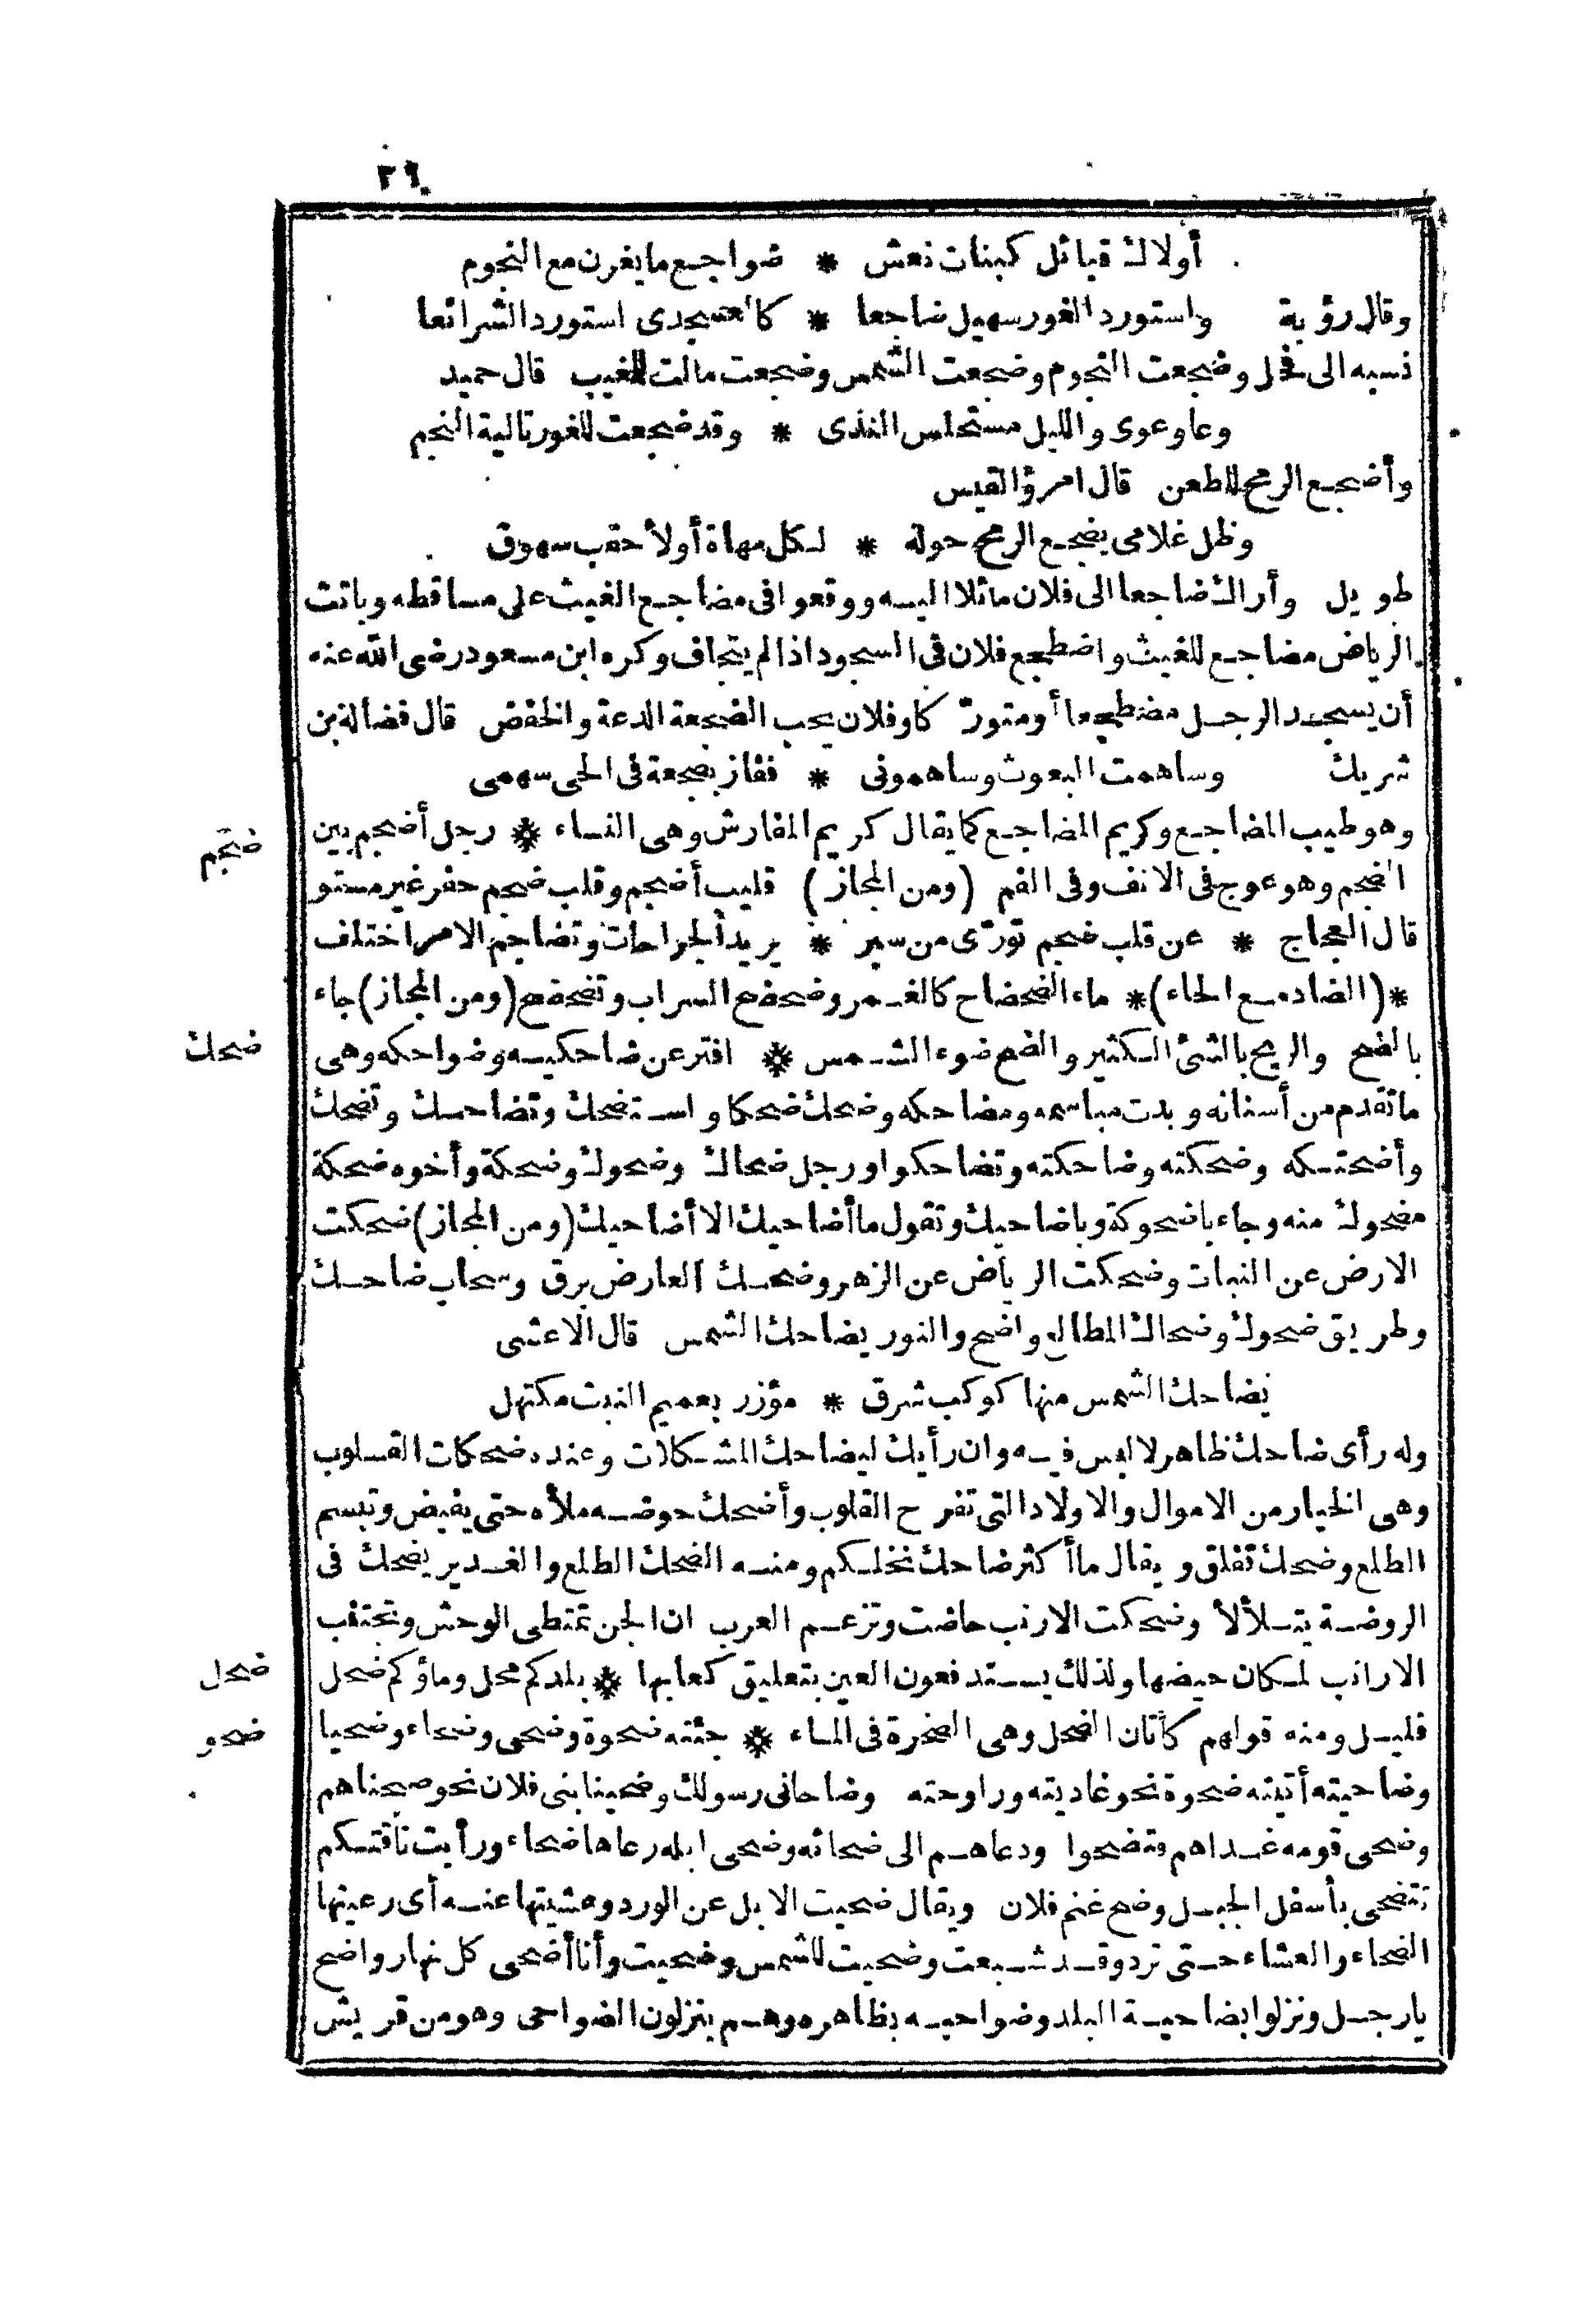 ٢٦
أولاك قبائل كبنات نعش * ضواجع ما يغرن مع النجوم
وقال رؤبة واستورد الغور سهيل ضاجعا * كالعسجدى استورد الشرائعا
نسبه الى فحل وضجعت النجوم وضجعت الشمس وضجعت مالت للمغيب قال حميد
وعاو عوى والليل مستحلس الندى * وقد ضجعت للغور تالية النجم
وأضجع الرمح للطعن قال امرؤ القيس
وظل غلامى يضجع الرمح حوله * لكل مهاة أو لأحقب سهوق
طويل وأراك ضاجعا الى فلان مائلا اليه ووقعوا فى مضاجع الغيث على مساقطه وباتت
الرياض مضاجع للغيث واضطجع فلان فى السجود اذا لم يتجاف وكره ابن مسعود رضى الله عنه
أن يسجد الرجل مضطجعا أو متورّ كا وفلان يحب الضجعة الدعة والخفض قال فضالة بن
شريك وساهمت البعوث وساهمونى * ففاز بضجعة فى الحى سهمى
وهو طيب المضاجع وكريم المضاجع كما يقال كريم المفارش وهى النساء * رجل أضجم بين
ضجم
الضجم وهو عوج فى الانف وفى الفم (ومن المجاز) قليب أضجم وقلب ضجم حفر غير مستو
قال العجاج * عن قلب ضجم تورّى من سبر * يريد الجراحات وتضاجم الامر اختلف
*(الضاد مع الحاء)* ماء الضحضاح كالغمر وضحضح السراب وتضحضح (ومن المجاز) جاء
بالضح والريح بالشئ الكثير والضح ضوء الشمس * افتر عن ضاحكيه وضواحكه وهى
ضحك
ما تقدم من أسنانه وبدت مباسمه ومضاحكه وضحك ضحكا واستضحك وتضاحك وتضحك
وأضحكته وضحكته وضاحكته وتضاحكوا ورجل ضحاك وضحوك وضحكة وأخوه ضحكة
مضحوك منه وجاء باضحوكة وباضاحيك وتقول ما أضاحيك الا أضاحيك (ومن المجاز) ضحكت
الارض عن النبات وضحكت الرياض عن الزهر وضحك العارض برق وسحاب ضاحك
وطريق ضحوك وضحاك المطالع واضح والنور يضاحك الشمس قال الاعشى
يضاحك الشمس منها كوكب شرق * مؤزر بعميم النبت مكتهل
وله رأى ضاحك ظاهر لا لبس فيه وان رأيك ليضاحك المشكلات وعنده ضحكات القلوب
وهى الخيار من الاموال والاولاد التى تفرح القلوب وأضحك حوضه ملأه حتى يفيض وتبسم
الطلع وضحك تفلق ويقال ما أكثر ضاحك نخلكم ومنه الضحك الطلع والغدير يضحك فى
الروضة يتلألأ وضحكت الارنب حاضت وتزعم العرب ان الجن تمتطى الوحش وتجتنب
الارانب لمكان حيضها ولذلك يستدفعون العين بتعليق كعابها * بلدكم محل وماؤكم ضحل
ضحل
قليل ومنه قولهم كأتان الضحل وهى الصخرة فى الماء * جئته ضحوة وضحى وضحاء وضحيا
ضحو
وضاحيته أتيته ضحوة نحو غاديته وراوحته وضاحانى رسولك وضحينا بنى فلان نحو صبحناهم
وضحى قومه غداهم وتضحوا ودعاهم الى ضحائه وضحى ابله رعاها ضحاء ورأيت ناقتكم
تتضحى بأسفل الجبل وضح غنم فلان ويقال ضحيت الابل عن الورد وعشيتها عنه أى رعيتها
الضحاء والعشاء حتى ترد وقد شبعت وضحيت للشمس وضحيت وأنا أضحى كل نهار واضح
يارجل ونزلوا بضاحية البلد وضواحيه بظاهره وهم ينزلون الضواحى وهو من قريش